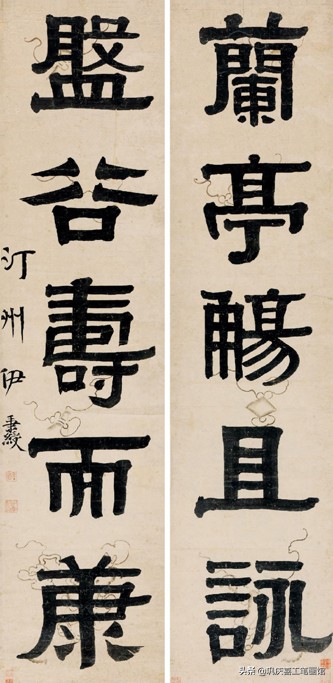 蘭亭觴且詠
盤谷壽而康
汀州伊秉綬
头条 @巩庆喜工笔画馆